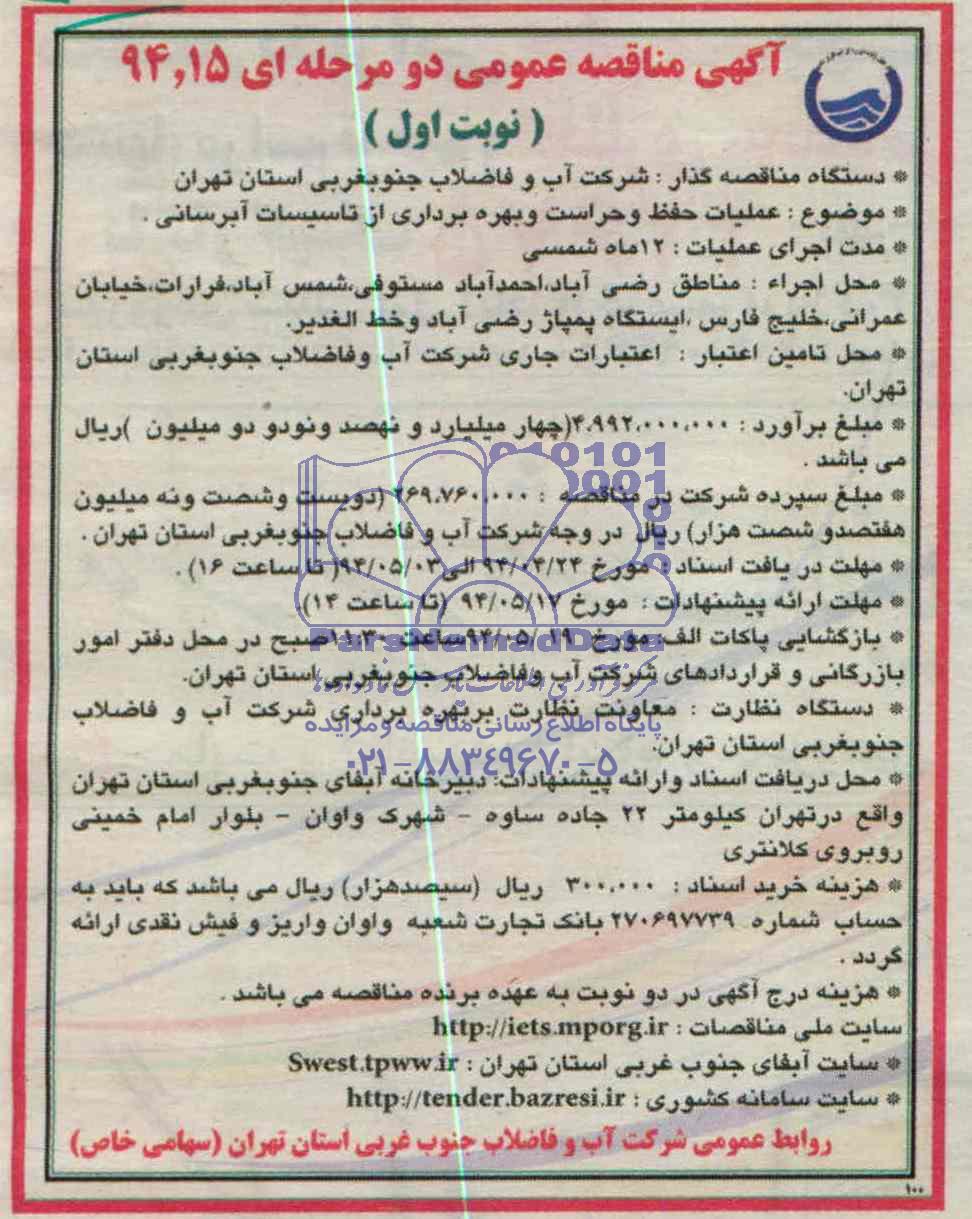 آگهی مناقصه عمومی دو مرحله ای ۹۴,۱۵
( نوبت اول )
* دستگاه مناقصه گذار : شرکت آب و فاضلاب جنوبغربی استان تهران
* موضوع : عملیات حفظ وحراست وبهره برداری از تاسیسات آبرسانی .
* مدت اجرای عملیات : ۱۲ماه شمسی
* محل اجراء : مناطق رضی آباد،احمدآباد مستوفی،شمس آباد،فرارات،خیابان
عمرانی،خلیج فارس ،ایستگاه پمپاژ رضی آباد وخط الغدیر.
* محل تامین اعتبار : اعتبارات جاری شرکت آب وفاضلاب جنوبغربی استان
تهران.
* مبلغ برآورد : ۴،۹۹۲،۰۰۰،۰۰۰(چهار میلیارد و نهصد ونودو دو میلیون )ریال
می باشد .
* مبلغ سپرده شرکت در مناقصه : ۲۶۹،۷۶۰،۰۰۰ (دویست وشصت ونه میلیون
هفتصدو شصت هزار) ریال در وجه شرکت آب و فاضلاب جنوبغربی استان تهران .
* مهلت در یافت اسناد : مورخ ۹۴/۰۴/۲۴ الی۹۴/۰۵/۰۳( تا ساعت ۱۶) .
* مهلت ارائه پیشنهادات : مورخ ۹۴/۰۵/۱۷ (تا ساعت ۱۴).
* بازگشایی پاکات الف: مورخ ۹۴/۰۵/۱۹ساعت ۱۱:۳۰صبح در محل دفتر امور
بازرگانی و قراردادهای شرکت آب وفاضلاب جنوبغربی استان تهران.
* دستگاه نظارت : معاونت نظارت بربهره برداری شرکت آب و فاضلاب
جنوبغربی استان تهران.
* محل دریافت اسناد وارائه پیشنهادات: دبیرخانه آبفای جنوبغربی استان تهران
واقع درتهران کیلومتر ۲۲ جاده ساوه - شهرک واوان - بلوار امام خمینی
روبروی کلانتری
* هزینه خرید اسناد : ۳۰۰،۰۰۰ ریال (سیصدهزار) ریال می باشد که باید به
حساب شماره ۲۷۰۶۹۷۷۳۹ بانک تجارت شعبه واوان واریز و فیش نقدی ارائه
گردد .
* هزینه درج آگهی در دو نوبت به عهده برنده مناقصه می باشد .
سایت ملی مناقصات : http://iets.mporg.ir
* سایت آبفای جنوب غربی استان تهران : Swest.tpww.ir
* سایت سامانه کشوری : http://tender.bazresi.ir
روابط عمومی شرکت آب و فاضلاب جنوب غربی استان تهران (سهامی خاص)
۱۰۰
ParsNamadData
پایگاه اطلاع رسانی مناقصه و مزایده
۰۲۱-۸۸۳۴۹۶۷۰-۵